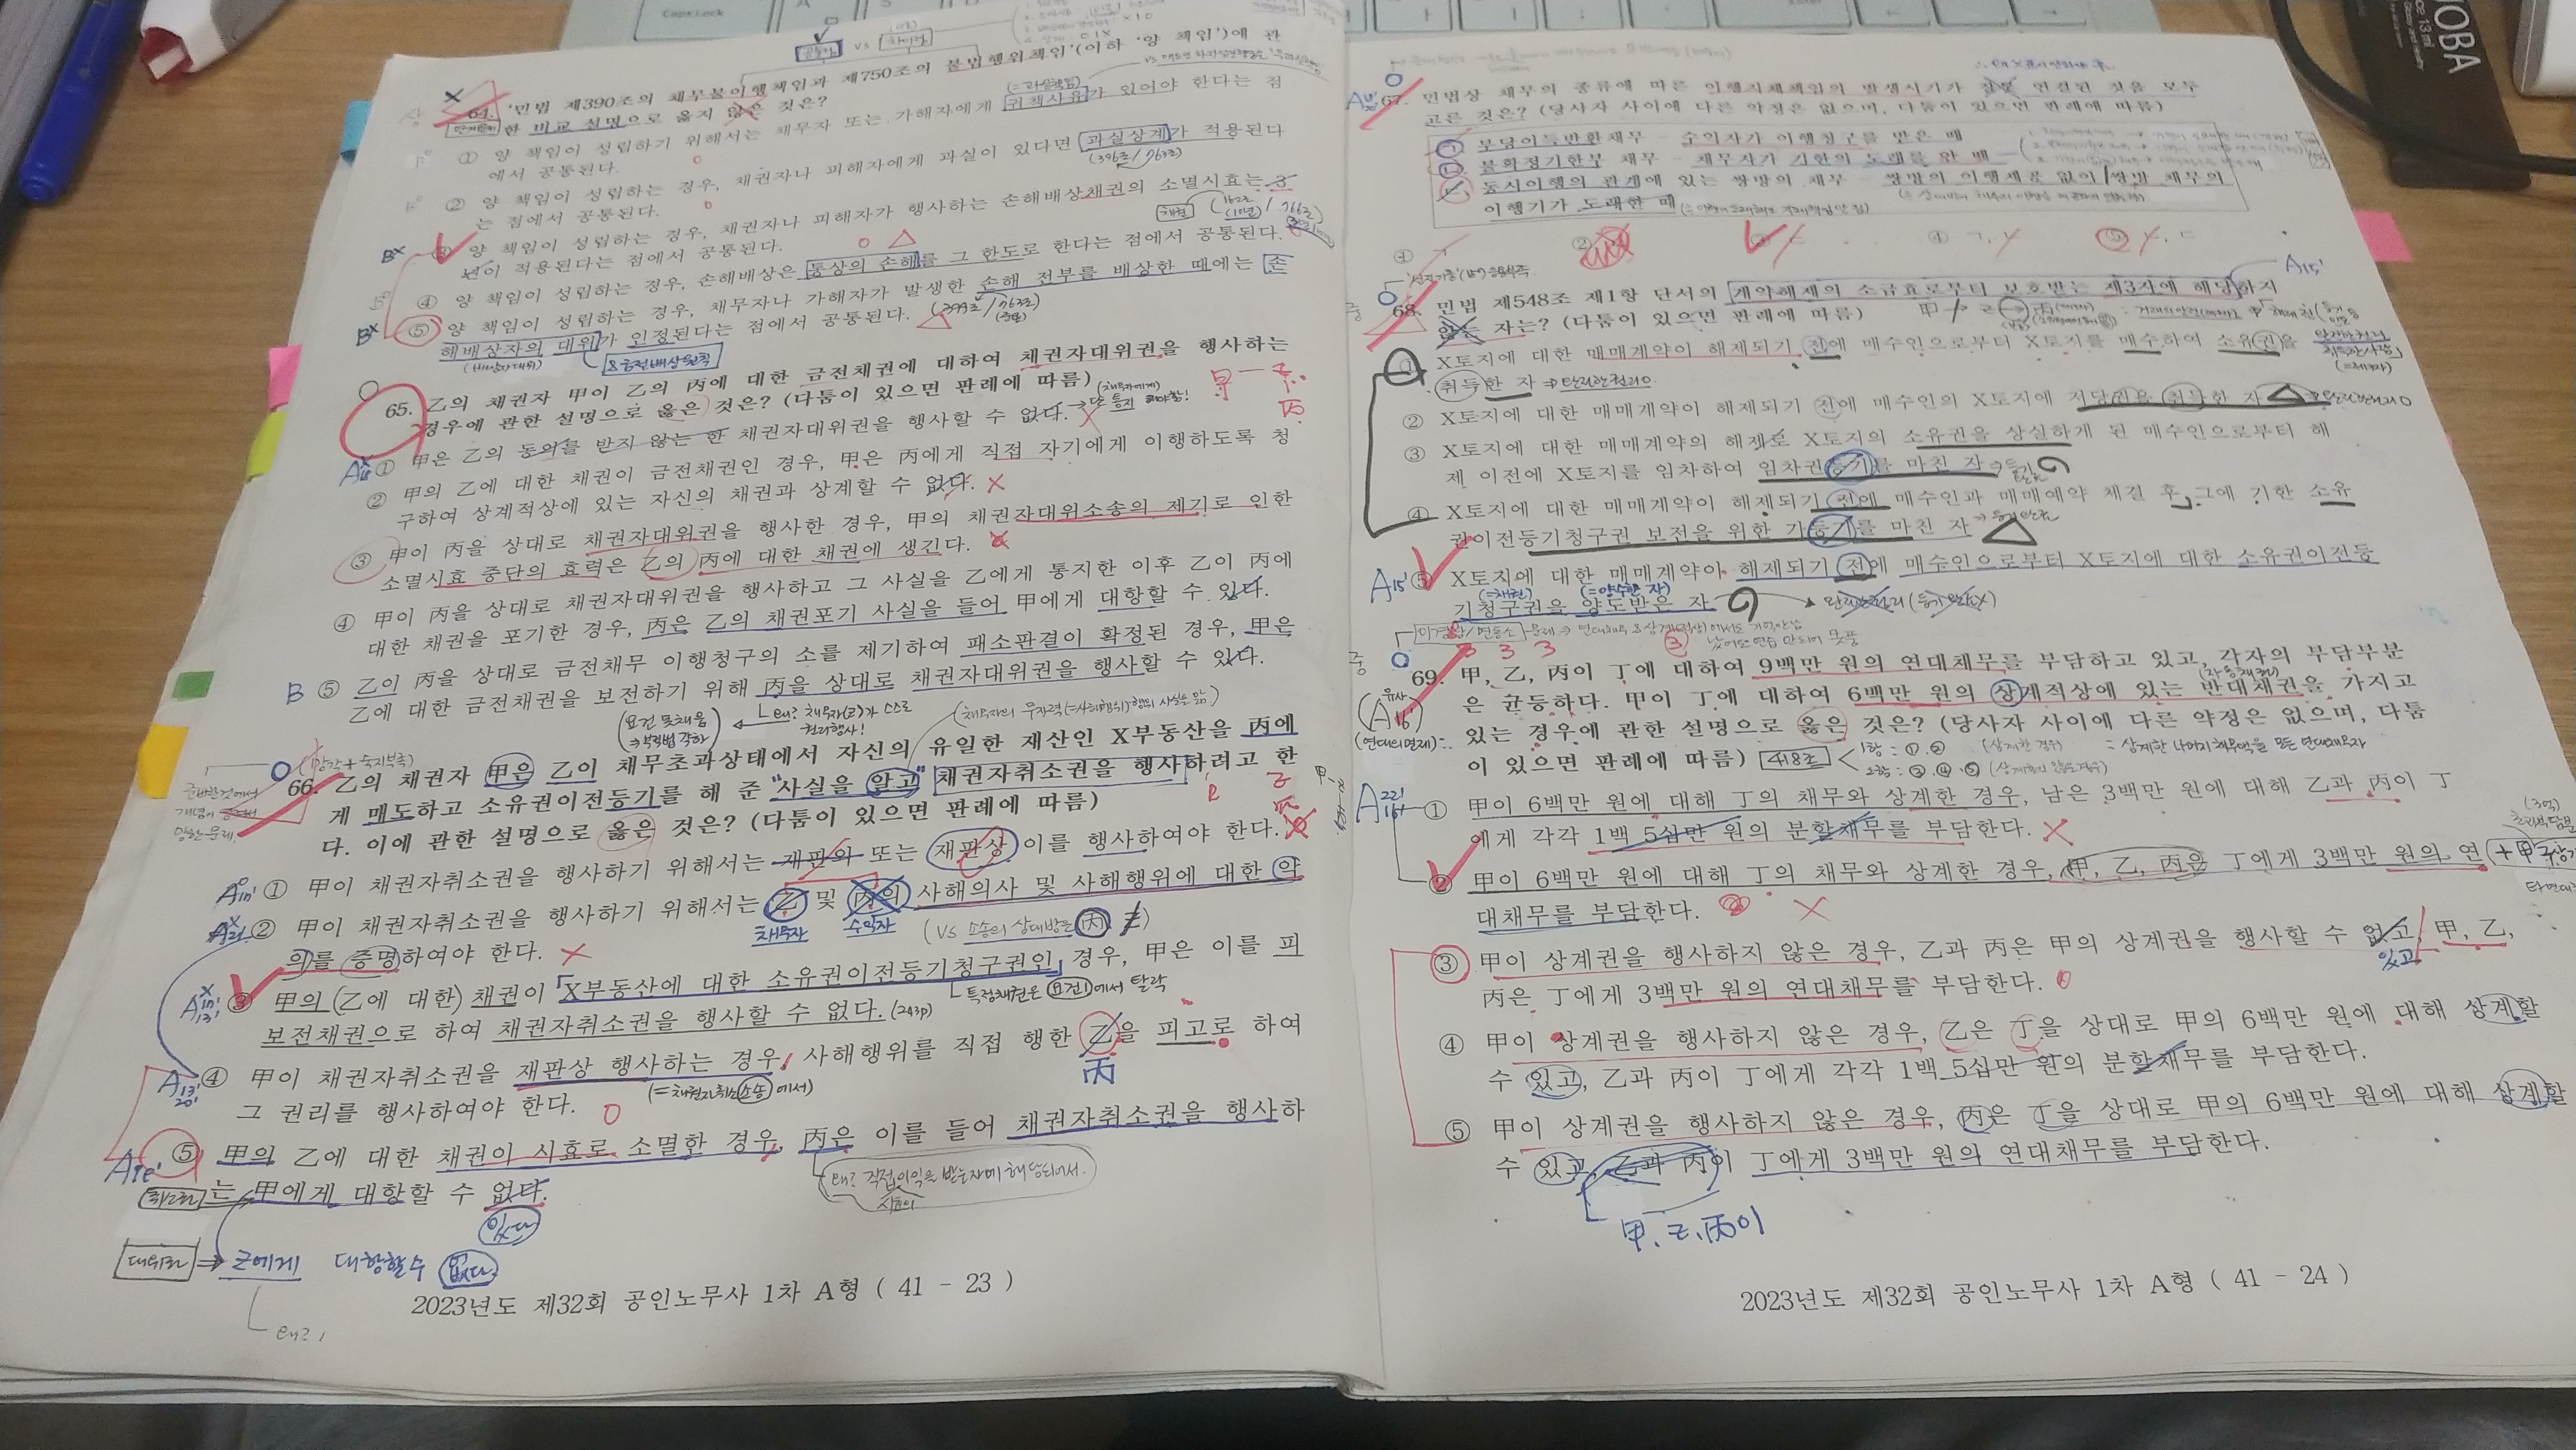 Caps Lock
JOBA
64. '민법 제390조의 채무불이행책임과 제750조의 불법행위책임'(이하 '양 책임')에 관
한 비교 설명으로 옳지 않은 것은?
① 양 책임이 성립하기 위해서는 채무자 또는 가해자에게 귀책사유가 있어야 한다는 점
에서 공통된다.
② 양 책임이 성립하는 경우, 채권자나 피해자에게 과실이 있다면 과실상계가 적용된다
(396조/763조)
는 점에서 공통된다.
③ 양 책임이 성립하는 경우, 채권자나 피해자가 행사하는 손해배상채권의 소멸시효는 3
년이 적용된다는 점에서 공통된다.
④ 양 책임이 성립하는 경우, 손해배상은 통상의 손해를 그 한도로 한다는 점에서 공통된다.
⑤ 양 책임이 성립하는 경우, 채무자나 가해자가 발생한 손해 전부를 배상한 때에는 손
(399조/763조)
해배상자의 대위가 인정된다는 점에서 공통된다.
65. 乙의 채권자 甲이 乙의 丙에 대한 금전채권에 대하여 채권자대위권을 행사하는
경우에 관한 설명으로 옳은 것은? (다툼이 있으면 판례에 따름)
① 甲은 乙의 동의를 받지 않는 한 채권자대위권을 행사할 수 없다.
② 甲의 乙에 대한 채권이 금전채권인 경우, 甲은 丙에게 직접 자기에게 이행하도록 청
구하여 상계적상에 있는 자신의 채권과 상계할 수 없다.
③ 甲이 丙을 상대로 채권자대위권을 행사한 경우, 甲의 채권자대위소송의 제기로 인한
소멸시효 중단의 효력은 乙의 丙에 대한 채권에 생긴다.
④ 甲이 丙을 상대로 채권자대위권을 행사하고 그 사실을 乙에게 통지한 이후 乙이 丙에
대한 채권을 포기한 경우, 丙은 乙의 채권포기 사실을 들어 甲에게 대항할 수 있다.
B ⑤ 乙이 丙을 상대로 금전채무 이행청구의 소를 제기하여 패소판결이 확정된 경우, 甲은
乙에 대한 금전채권을 보전하기 위해 丙을 상대로 채권자대위권을 행사할 수 있다.
(망각+숙지부족)
66. 乙의 채권자 甲은 乙이 채무초과상태에서 자신의 유일한 재산인 X부동산을 丙에
게 매도하고 소유권이전등기를 해 준 "사실을 알고" 채권자취소권을 행사하려고 한
다. 이에 관한 설명으로 옳은 것은? (다툼이 있으면 판례에 따름)
① 甲이 채권자취소권을 행사하기 위해서는 재판외 또는 재판상 이를 행사하여야 한다.
② 甲이 채권자취소권을 행사하기 위해서는 乙 및 丙의 사해의사 및 사해행위에 대한 악
채무자 수익자 (vs 소송의 상대방은 丙)
의를 증명하여야 한다.
③ 甲의 (乙에 대한) 채권이 X부동산에 대한 소유권이전등기청구권인 경우, 甲은 이를 피
보전채권으로 하여 채권자취소권을 행사할 수 없다. (243p)
④ 甲이 채권자취소권을 재판상 행사하는 경우, 사해행위를 직접 행한 乙을 피고로 하여
丙
그 권리를 행사하여야 한다.
⑤ 甲의 乙에 대한 채권이 시효로 소멸한 경우, 丙은 이를 들어 채권자취소권을 행사하
는 甲에게 대항할 수 없다.
있다
대위권 ⇒ 乙에게 대항할수 없다.
2023년도 제32회 공인노무사 1차 A형 ( 41 - 23 )
67. 민법상 채무의 종류에 따른 이행지체책임의 발생시기가 잘못 연결된 것을 모두
고른 것은? (당사자 사이에 다른 약정은 없으며, 다툼이 있으면 판례에 따름)
ㄱ. 부당이득반환채무 - 수익자가 이행청구를 받은 때
ㄴ. 불확정기한부 채무 - 채무자가 기한의 도래를 안 때
ㄷ. 동시이행의 관계에 있는 쌍방의 채무 - 쌍방의 이행제공 없이 쌍방 채무의
이행기가 도래한 때
① ㄱ ② ㄴ ③ ㄷ ④ ㄱ, ㄴ ⑤ ㄴ, ㄷ
68. 민법 제548조 제1항 단서의 계약해제의 소급효로부터 보호받는 제3자에 해당하지
않는 자는? (다툼이 있으면 판례에 따름)
① X토지에 대한 매매계약이 해제되기 전에 매수인으로부터 X토지를 매수하여 소유권을
취득한 자
② X토지에 대한 매매계약이 해제되기 전에 매수인의 X토지에 저당권을 취득한 자
③ X토지에 대한 매매계약의 해제로 X토지의 소유권을 상실하게 된 매수인으로부터 해
제 이전에 X토지를 임차하여 임차권등기를 마친 자
④ X토지에 대한 매매계약이 해제되기 전에 매수인과 매매예약 체결 후 그에 기한 소유
권이전등기청구권 보전을 위한 가등기를 마친 자
A15' ⑤ X토지에 대한 매매계약이 해제되기 전에 매수인으로부터 X토지에 대한 소유권이전등
(=채권) (=양수한 자)
기청구권을 양도받은 자
3 3 3
69. 甲, 乙, 丙이 丁에 대하여 9백만 원의 연대채무를 부담하고 있고, 각자의 부담부분
은 균등하다. 甲이 丁에 대하여 6백만 원의 상계적상에 있는 반대채권을 가지고
있는 경우에 관한 설명으로 옳은 것은? (당사자 사이에 다른 약정은 없으며, 다툼
이 있으면 판례에 따름) 418조
① 甲이 6백만 원에 대해 丁의 채무와 상계한 경우, 남은 3백만 원에 대해 乙과 丙이 丁
에게 각각 1백 5십만 원의 분할채무를 부담한다.
② 甲이 6백만 원에 대해 丁의 채무와 상계한 경우, 甲, 乙, 丙은 丁에게 3백만 원의 연
대채무를 부담한다.
③ 甲이 상계권을 행사하지 않은 경우, 乙과 丙은 甲의 상계권을 행사할 수 없고, 甲, 乙,
있고
丙은 丁에게 3백만 원의 연대채무를 부담한다.
④ 甲이 상계권을 행사하지 않은 경우, 乙은 丁을 상대로 甲의 6백만 원에 대해 상계할
수 있고, 乙과 丙이 丁에게 각각 1백 5십만 원의 분할채무를 부담한다.
⑤ 甲이 상계권을 행사하지 않은 경우, 丙은 丁을 상대로 甲의 6백만 원에 대해 상계할
수 있고, 乙과 丙이 丁에게 3백만 원의 연대채무를 부담한다.
甲. 乙. 丙이
2023년도 제32회 공인노무사 1차 A형 ( 41 - 24 )